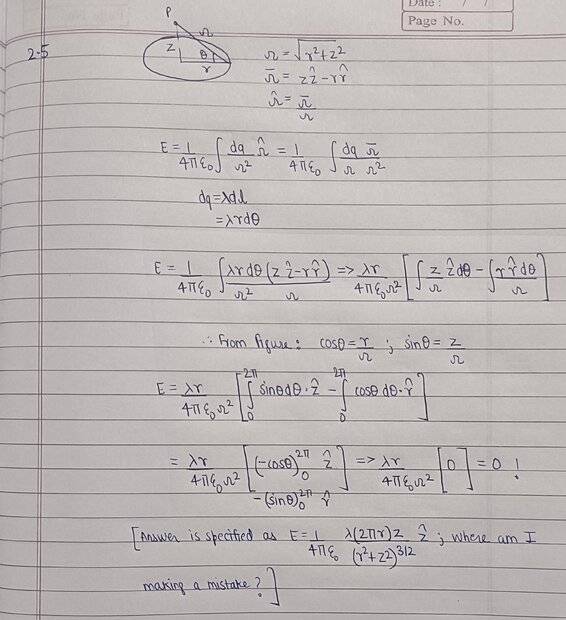 Date : / /
Page No.
P
2.5
z
θ
r
r
𝓇 = √(r²+z²)
𝓇̄ = zẑ - rr̂
𝓇̂ = 𝓇̄/𝓇
E = 1/4πε₀ ∫ dq/𝓇² 𝓇̂ = 1/4πε₀ ∫ dq/𝓇 𝓇̄/𝓇²
dq = λdl
= λrdθ
E = 1/4πε₀ ∫ λrdθ/𝓇² (zẑ - rr̂)/𝓇 => λr/4πε₀𝓇² [∫ z/𝓇 ẑdθ - ∫ rr̂dθ/𝓇]
∴ From figure: cosθ = r/𝓇 ; sinθ = z/𝓇
E = λr/4πε₀𝓇² [∫₀^2π sinθdθ·ẑ - ∫₀^2π cosθdθ·r̂]
= λr/4πε₀𝓇² [(-cosθ)₀^2π ẑ - (sinθ)₀^2π r̂] => λr/4πε₀𝓇² [0] = 0 !
[Answer is specified as E = 1/4πε₀ λ(2πr)z/(r²+z²)^3/2 ẑ ; where am I
making a mistake?]